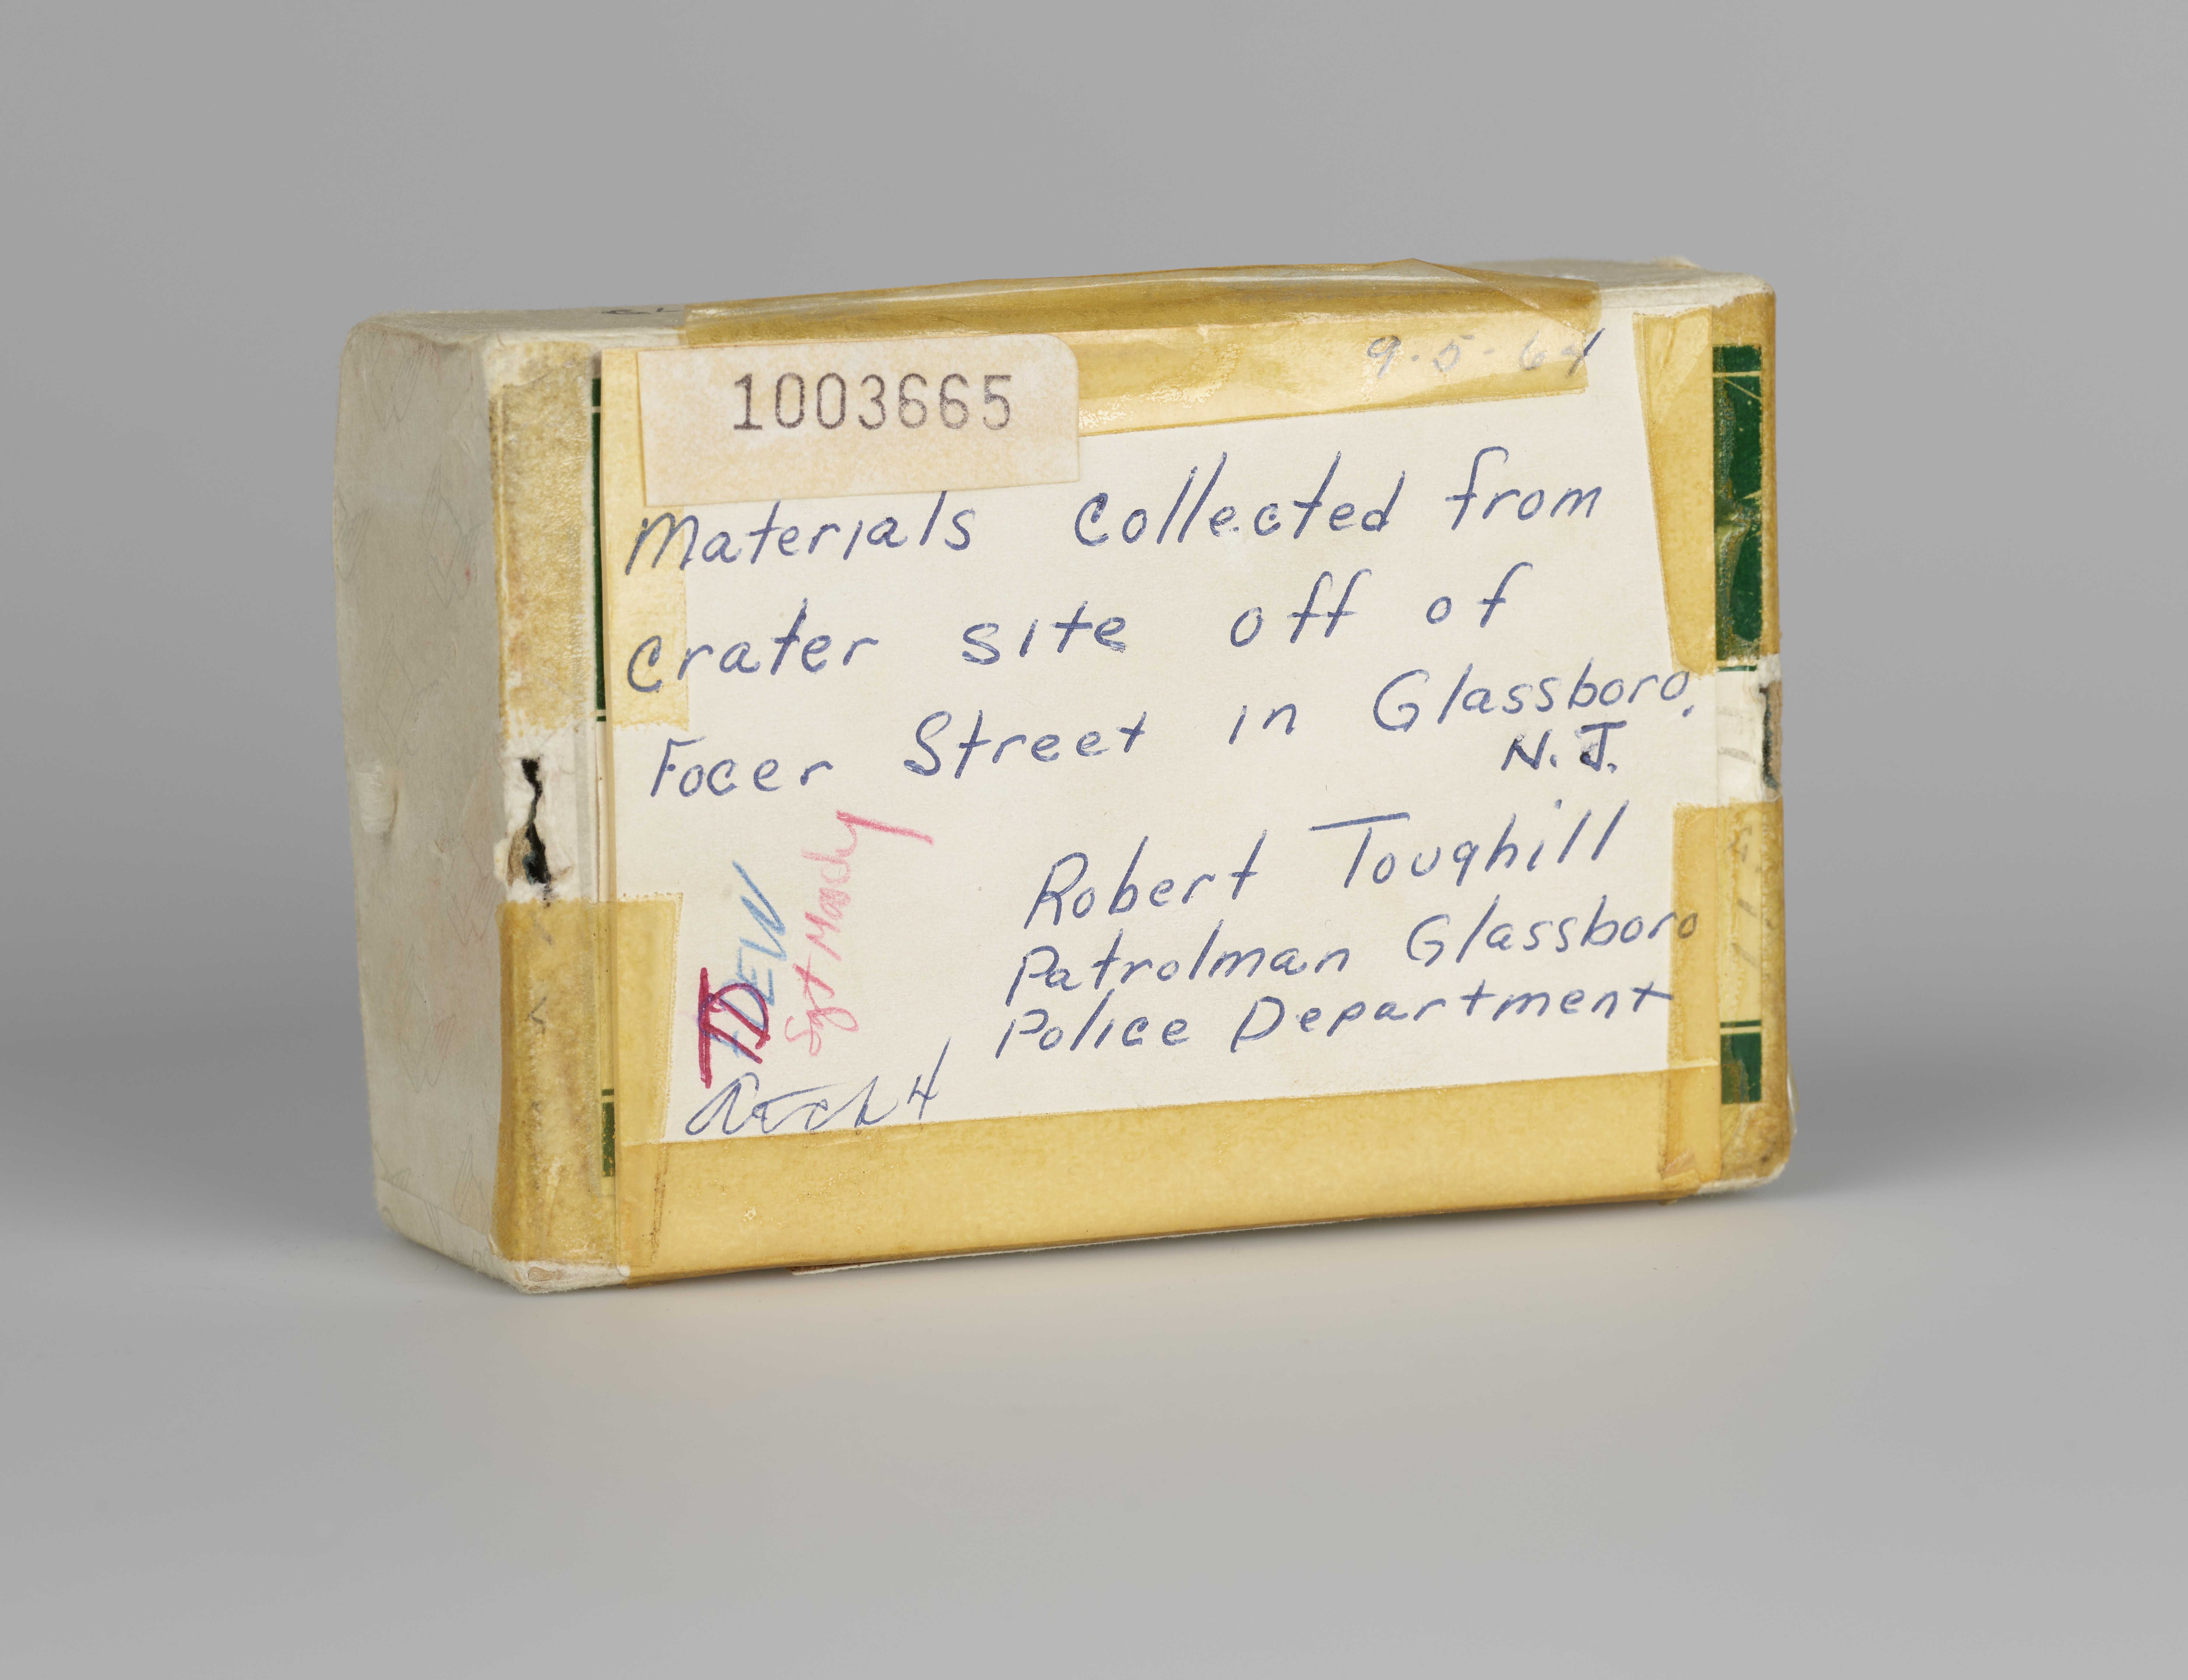 9-5-64
1003665
Materials collected from
crater site off of
Focer Street in Glassboro,
N.J.
Robert Toughill
Patrolman Glassboro
Police Department
TD
TDEW
Sgt Moody